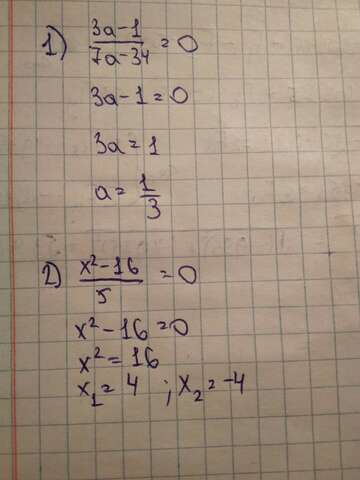 1) (3a-1)/(7a-34) = 0
3a-1=0
3a=1
a=1/3
2) (x²-16)/5 = 0
x²-16=0
x²=16
x₁=4 ; x₂=-4